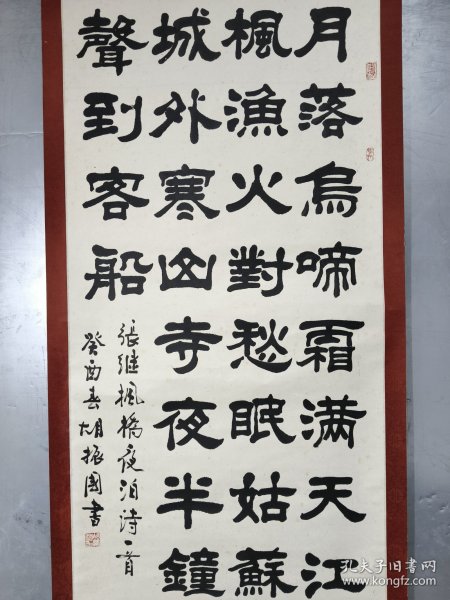 月落烏啼霜满天江
楓漁火對愁眠姑蘇
城外寒山寺夜半鐘
聲到客船
張继楓橋夜泊诗一首
癸酉春胡振國書
孔夫子旧书网
www.kongfz.com